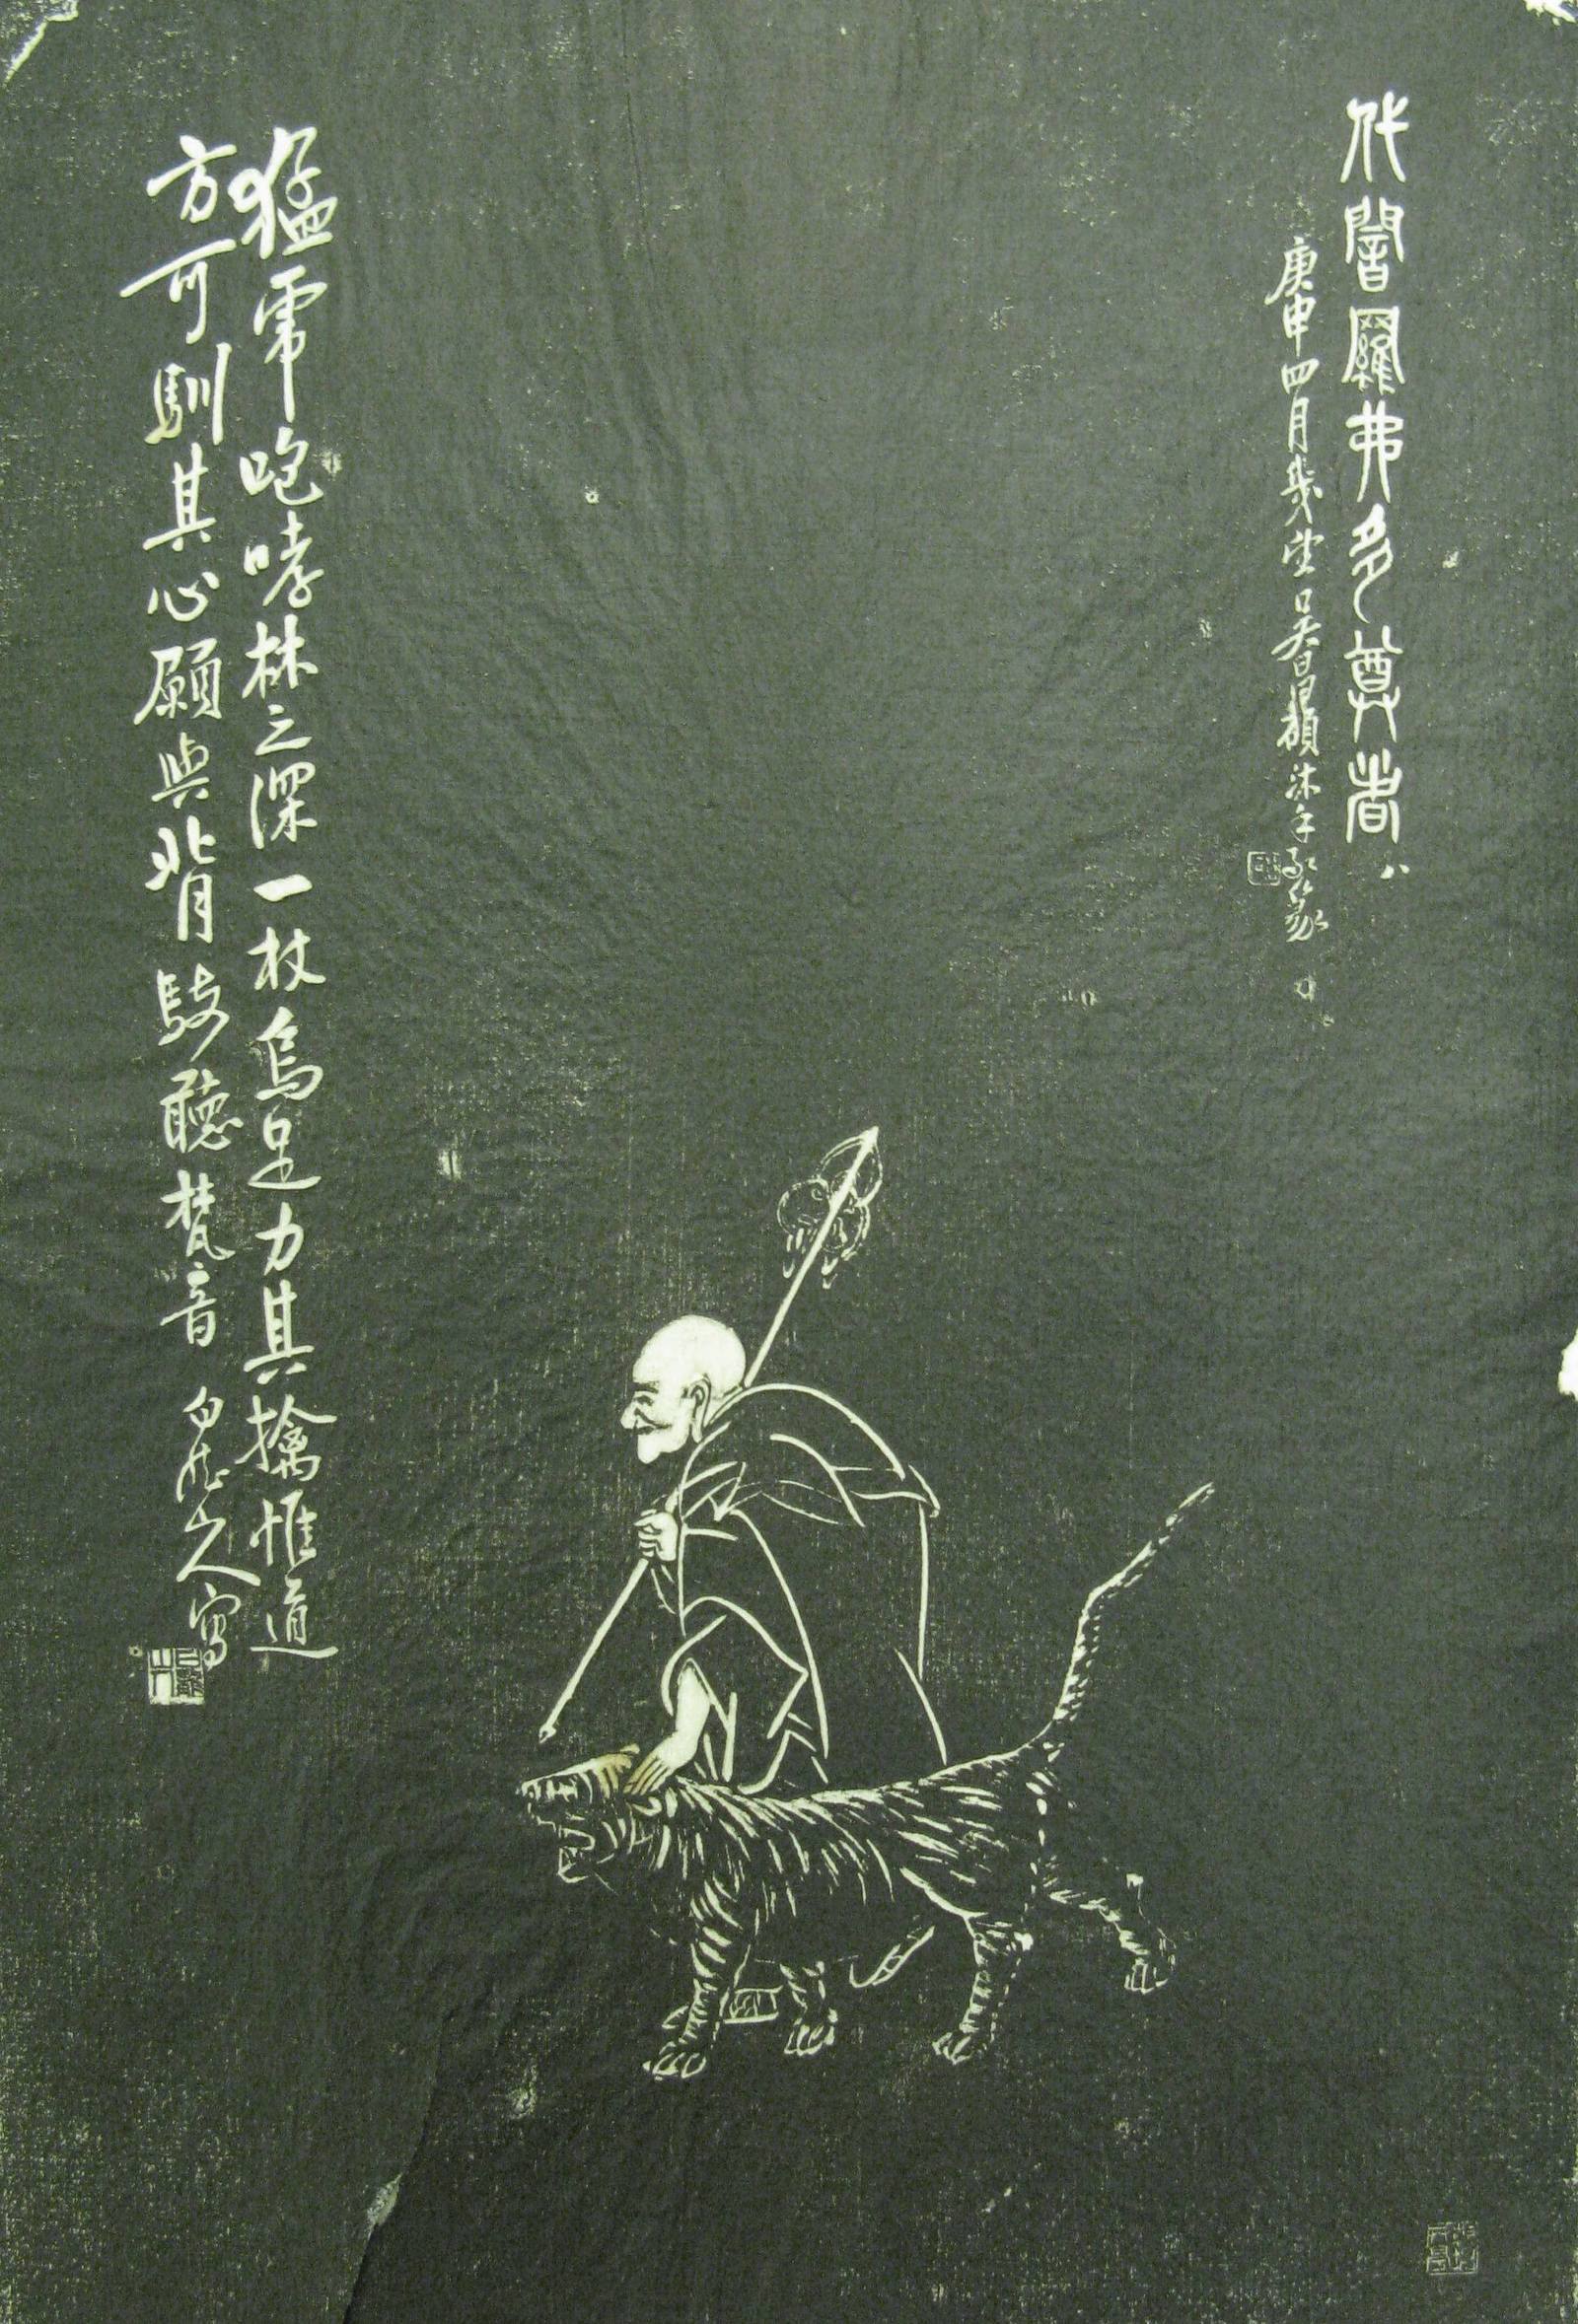 伐闍羅弗多尊者 八
庚申四月幾望吳昌碩沐手敬篆
猛虎咆哮林之深一杖烏足力其擒惟道
方可馴其心願與背騎聽梵音 白龍山人寫